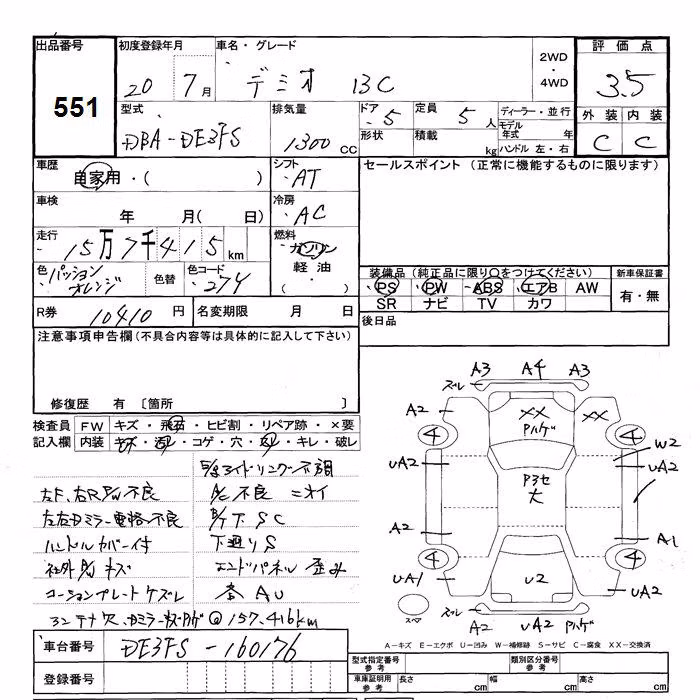 出品番号 初度登録年月 車名・グレード 2WD・4WD 評価点
551 20 7月 デミオ 13C 3.5
型式 排気量 ドア・5 定員 5人 ディーラー・並行 外装 内装
DBA-DE3FS 1300cc 形状 積載 kg モデル年式 年 C C
ハンドル 左・右
車歴 自家用・( ) シフト ・AT セールスポイント (正常に機能するものに限ります)
車検 年 月( 日) 冷房 ・AC
走行 15万7千415km 燃料 ・ガソリン 軽油・
色 パッションオレンジ 色替 色コード ・27A 装備品(純正品に限り○をつけてください) 新車保証書
・PS ・PW ・ABS ・エアB AW 有・無
SR ナビ TV カワ
R券 10410円 名変期限 月 日 後日品
注意事項申告欄(不具合内容等は具体的に記入して下さい)
修復歴 有 〔箇所
検査員記入欄 FW キズ・飛石・ヒビ割・リペア跡・×要
内装 キズ・汚レ・コゲ・穴・スレ・キレ・破レ
アイドリング不調
左F、右R P/W不良 A/C不良 ニオイ
左右Dミラー電格不良 B/T下SC
ハンドルカバー付 下廻りS
社外 キズ エンドパネル歪み
コーションプレートケズレ AU
@157,416km
車台番号 DE3FS-160176
登録番号
A3 A4 A3
ズレ
A2 XX Pハゲ XX
4 4
W2
UA2 P3セ大 UA2
A2 A1
4 4
UA1 U2 UA2
スペア ズレ A2 UA2 Pハゲ
A-キズ E-エクボ U-凹み W-補修跡 S-サビ C-腐食 XX-交換済
型式指定番号 参考 類別区分番号 参考
車庫証明用 参考 長さ cm 幅 cm 高さ cm